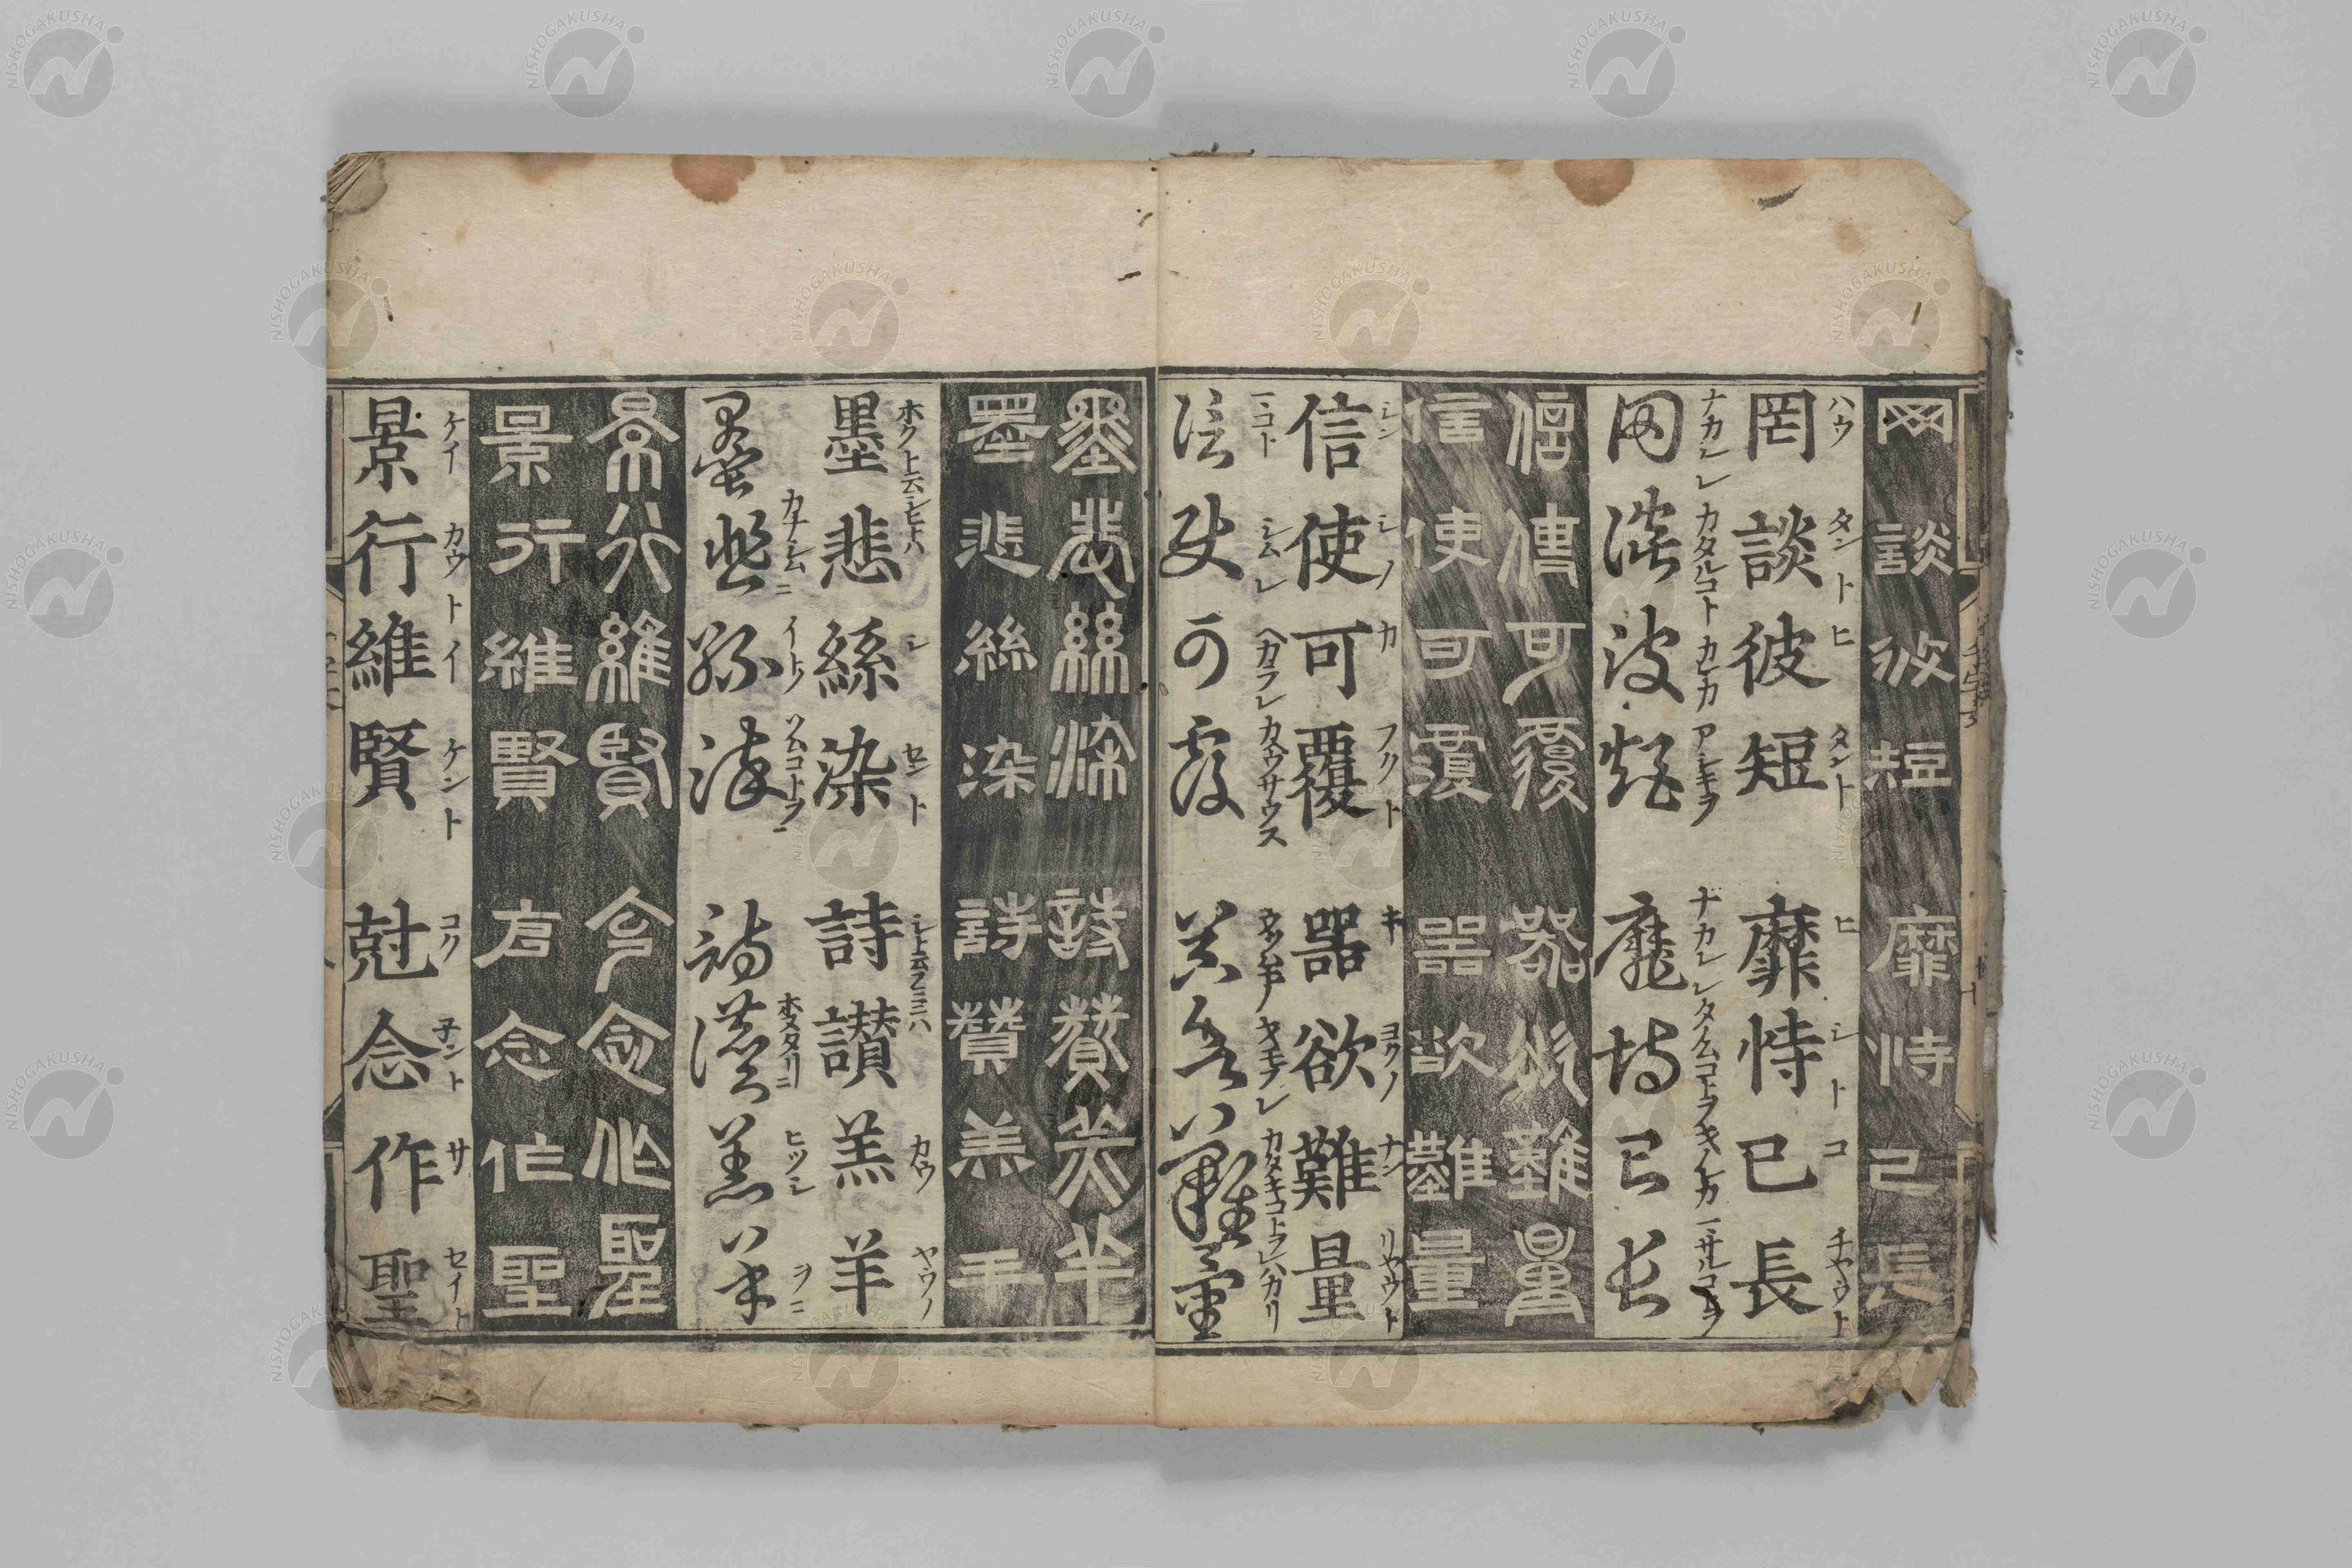 罔談彼短 靡恃己長
ハウ タント ヒ タント ヒ シト コ チヤウト
罔談彼短 靡恃己長
ナカレレ カタルコト カヒカ アシキヲ ナカレレ
罔談彼短 靡恃己長
信使可覆 器欲難量
信使可覆 器欲難量
シン シノ カ フクト キ ヨクノ ナン リヤウト
信使可覆 器欲難量
シムレ ヘカラレ カウサウス
信使可覆 器欲難量
墨悲絲染 詩讃羔羊
墨悲絲染 詩讃羔羊
シ セント カウ ヤウノ
墨悲絲染 詩讃羔羊
カナシムニ イトノ ソムコトヲ ホメタリニ ヒツシ ヲニ
墨悲絲染 詩讃羔羊
景行維賢 剋念作聖
景行維賢 克念作聖
ケイ カウト イ ケント コク 子ント サ セイト
景行維賢 尅念作聖
NISHOGAKUSHA